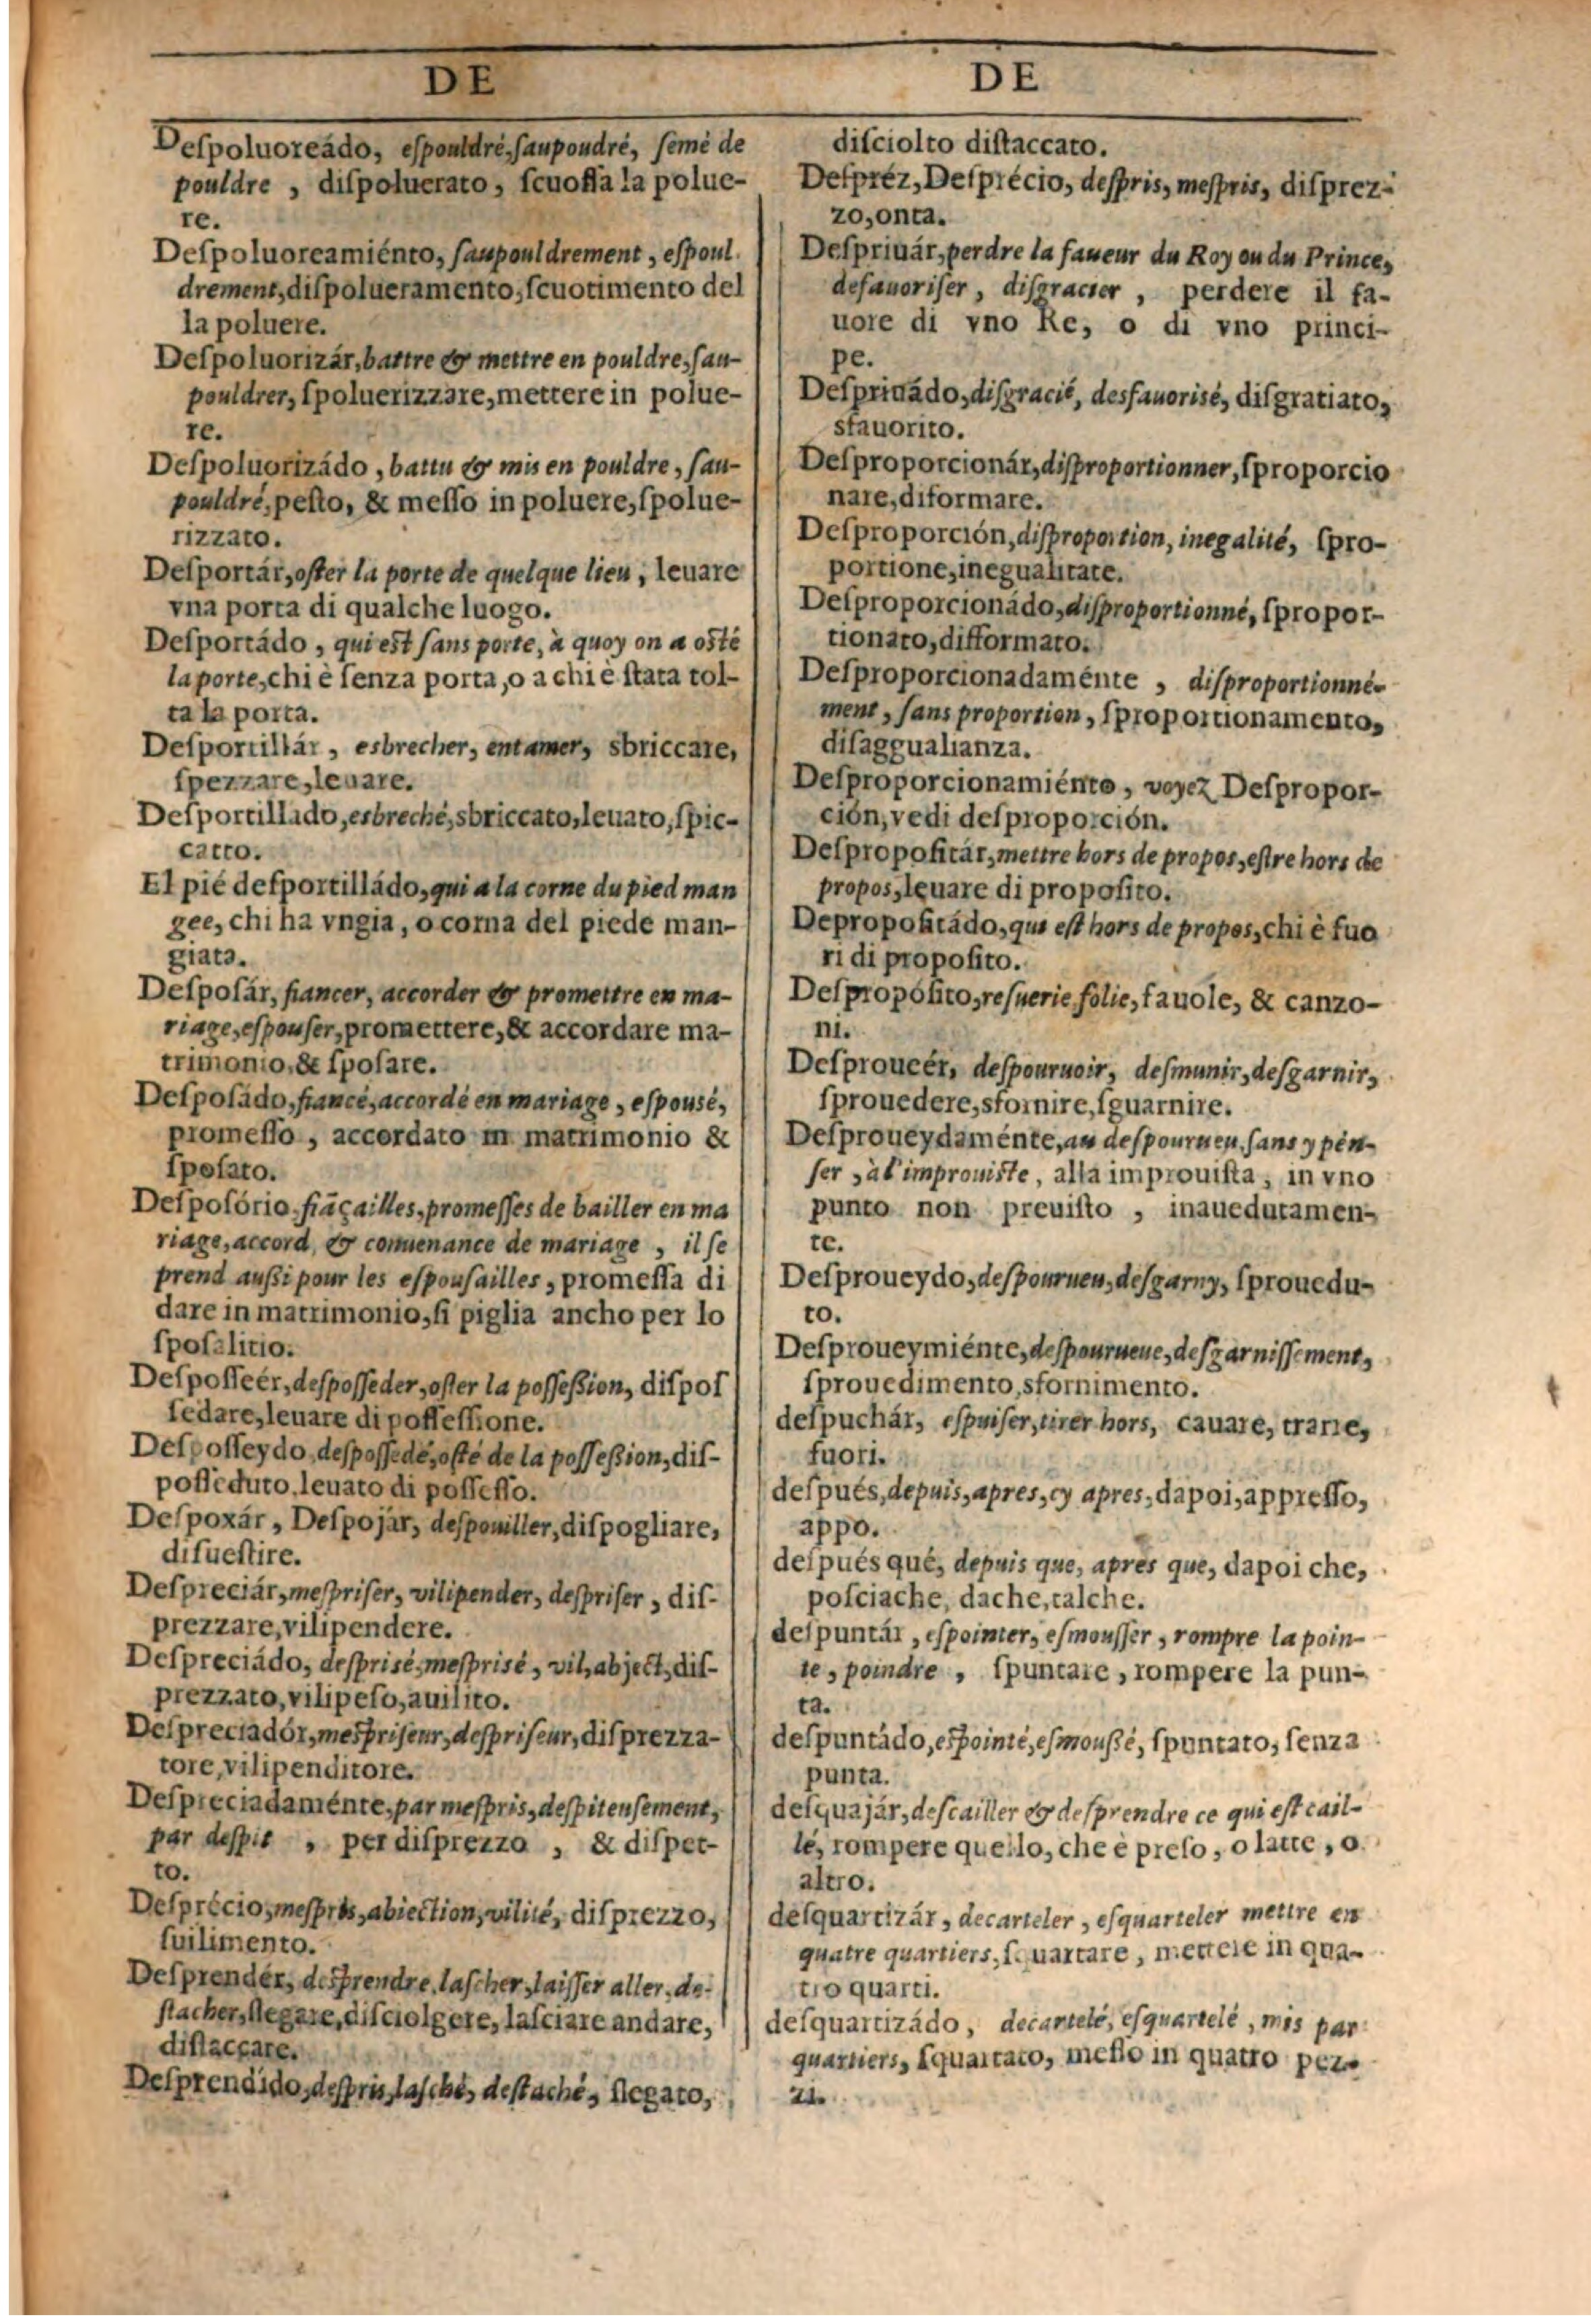 DE
Deſpoluoreádo, eſpouldré, ſaupoudré, ſemé de
pouldre , diſpoluerato, ſcuoſſa la polue-
re.
Deſpoluoreamiénto, ſaupouldrement, eſpoul
drement, diſpolueramento, ſcuotimento del
la poluere.
Deſpoluorizár, battre & mettre en pouldre, ſau-
pouldrer, ſpoluerizzare, mettere in polue-
re.
Deſpoluorizádo, battu & mis en pouldre, ſau-
pouldré, peſto, & meſſo in poluere, ſpolue-
rizzato.
Deſportár, oſter la porte de quelque lieu, leuare
vna porta di qualche luogo.
Deſportádo, qui eſt ſans porte, à quoy on a oſté
la porte, chi è ſenza porta, o a chi è ſtata tol-
ta la porta.
Deſportillár, esbrecher, entamer, sbriccare,
ſpezzare, leuare.
Deſportillado, esbreché, sbriccato, leuato, ſpic-
catto.
El pié deſportilládo, qui a la corne du pied man
gee, chi ha vngia, o corna del piede man-
giata.
Deſpoſár, fiancer, accorder & promettre en ma-
riage, eſpouſer, promettere, & accordare ma-
trimonio, & ſpoſare.
Deſpoſádo, fiancé, accordé en mariage, eſpousé,
promeſſo , accordato in matrimonio &
ſpoſato.
Deſpoſório, fiãçailles, promeſſes de bailler en ma
riage, accord, & conuenance de mariage, il ſe
prend außi pour les eſpouſailles, promeſſa di
dare in matrimonio, ſi piglia ancho per lo
ſpoſalitio.
Deſpoſſeér, deſpoſſeder, oſter la poſſeßion, diſpoſ
ſedare, leuare di poſſeſſione.
Deſpoſſeydo, deſpoſſedé, oſté de la poſſeßion, diſ-
poſſeduto, leuato di poſſeſſo.
Deſpoxár, Deſpojár, deſpouiller, diſpogliare,
diſueſtire.
Deſpreciár, meſpriſer, vilipender, deſpriſer, diſ-
prezzare, vilipendere.
Deſpreciádo, deſprisé, meſprisé, vil, abject, diſ-
prezzato, vilipeſo, auilito.
Deſpreciadór, meſpriſeur, deſpriſeur, diſprezza-
tore, vilipenditore.
Deſpreciadaménte, par meſpris, deſpiteuſement,
par deſpit , per diſprezzo , & diſpet-
to.
Deſprécio, meſpris, abiection, vilité, diſprezzo,
ſuilimento.
Deſprendér, deſprendre, laſcher, laiſſer aller, de-
ſtacher, ſlegare, diſciolgere, laſciare andare,
diſtaccare.
Deſprendído, deſpris, laſché, deſtaché, ſlegato,
DE
diſciolto diſtaccato.
Deſpréz, Deſprécio, deſpris, meſpris, diſprez-
zo, onta.
Deſpriuár, perdre la faueur du Roy ou du Prince,
defauoriſer, diſgracier, perdere il fa-
uore di vno Re, o di vno princi-
pe.
Deſpriuádo, diſgracié, desfauorisé, diſgratiato,
sfauorito.
Deſproporcionár, diſproportionner, ſproporcio
nare, diformare.
Deſproporción, diſproportion, inegalité, ſpro-
portione, inegualitate.
Deſproporcionádo, diſproportionné, ſpropor-
tionato, difformato.
Deſproporcionadaménte , diſproportionné-
ment, ſans proportion, ſproportionamento,
diſaggualianza.
Deſproporcionamiénto, voyez Deſpropor-
ción, vedi deſproporción.
Deſpropoſitár, mettre hors de propos, eſtre hors de
propos, leuare di propoſito.
Depropoſitádo, qui eſt hors de propos, chi è fuo
ri di propoſito.
Deſpropóſito, reſuerie folie, fauole, & canzo-
ni.
Deſproueér, deſpouruoir, deſmunir, deſgarnir,
ſprouedere, sfornire, ſguarnire.
Deſproueydaménte, au deſpourueu, ſans y pen-
ſer, à l'improuiſte, alla improuiſta, in vno
punto non preuiſto , inauedutamen-
te.
Deſproueydo, deſpourueu, deſgarny, ſprouedu-
to.
Deſproueymiénte, deſpourueue, deſgarniſſement,
ſprouedimento, sfornimento.
deſpuchár, eſpuiſer, tirer hors, cauare, trarre,
fuori.
deſpués, depuis, apres, cy apres, dapoi, appreſſo,
appo.
deſpués qué, depuis que, apres que, dapoi che,
poſciache, dache, talche.
deſpuntár, eſpointer, eſmouſſer, rompre la poin-
te, poindre , ſpuntare, rompere la pun-
ta.
deſpuntádo, eſpointé, eſmoußé, ſpuntato, ſenza
punta.
deſquajár, deſcailler & deſprendre ce qui eſt cail-
lé, rompere quello, che è preſo, o latte, o
altro.
deſquartizár, decarteler, eſquarteler mettre en
quatre quartiers, ſquartare, mettere in qua-
tro quarti.
deſquartizádo, decartelé, eſquartelé, mis par
quartiers, ſquartato, meſſo in quatro pez-
zi.